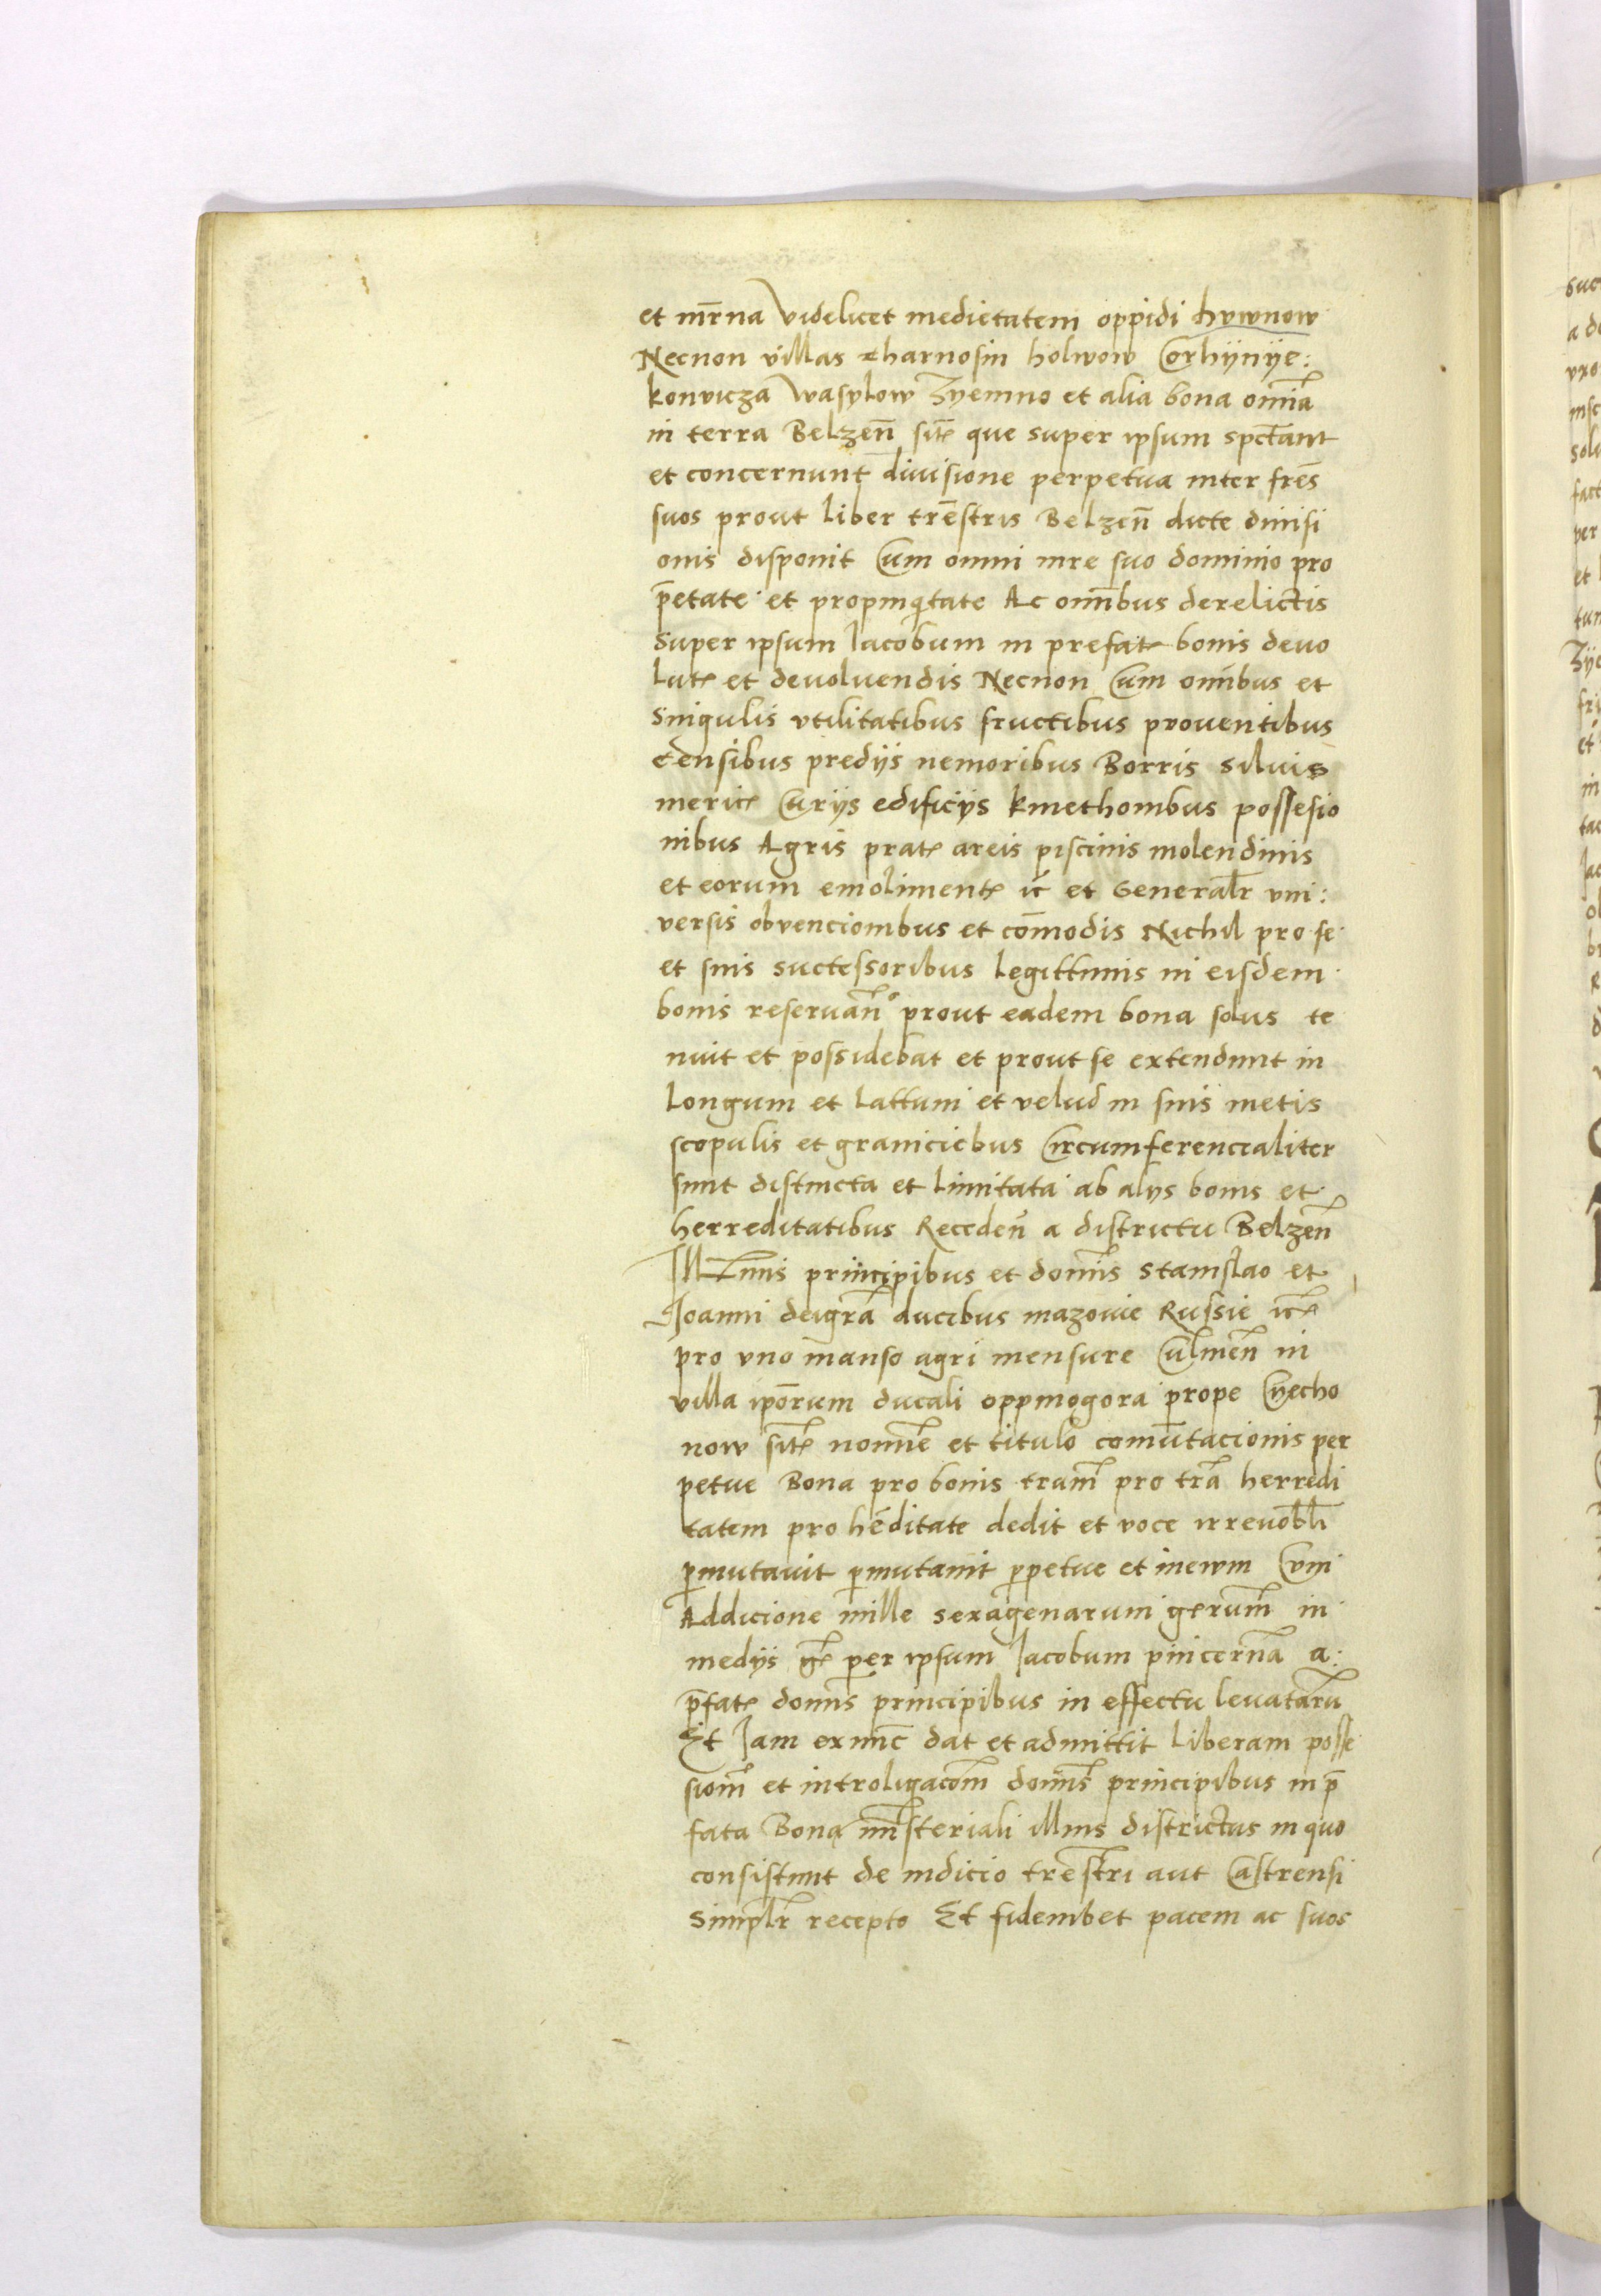 et mr̄na Videlicet medietatem oppidi hvwnow
Necnon villas tharnosin holwow Corhÿnÿe:
konvicza wasylow Zyemno et alia bona om̄ia
in terra Belzen̄ sit̄ que super ipsum spectant
et concernunt divisione perpetua inter fr̄es
suos prout liber tr̄estris Belzen̄ dicte divisi
onis disponit Cum omni iure suo dominio pro
p̄etate et propinqitate Ac om̄ibus derelictis
super ipsum Jacobum in prefat̄ bonis devo
lut̄ et devoluendis Necnon Cum om̄ibus et
Singulis vtilitatibus fructibus proventibus
censibus predijs nemoribus Borris siluis
meric̄ Curijs edificijs kmethonibus possesio
nibus Agris prat̄ areis piscinis molendinis
et eorum emoliment̄ ic̄ et Generalr̄ vni:
versis obvencionibus et com̄odis Nichil pro se
et suis successoribus legittimis in eisdem
bonis reservan̄o prout eadem bona solus te
nuit et possidebat et prout se extendunt in
longum et lattum et velud in suis metis
scopulis et graniciebus Circumferencialiter
sunt distincta et limitata ab alys bonis et
herreditatibus Receden̄ a districtu Belzen̄
Ill̄mis principibus et domīs Stanislao et
Joanni dei gr̄a ducibus mazovie Russie ic̄
pro vno manso agri mensure Culmen̄ in
villa ip̄orum ducali oppinogora prope Cyecho
now sit̄ nomīe et titulo comutacionis per
petue Bona pro bonis tram̄ pro tr̄a herredi
tatem pro hēditate dedit et voce irrevobl̄i
p̄mutavit p̄mutavit p̄petue et inewm Cum
Addicione mille sexagenarum gerum̄ in
medijs gr̄ per ipsum Jacobum pincerna a:
p̄fat̄ domīs principibus in effectu levatarū
Et Jam exnunc dat et admittit liberam posse
siom̄ et introligacōm domīs principibus in p̄
fata Bona mīsteriali illius districtus in quo
consistunt de iudicio tr̄estri aut Castrensi
Simplr̄ recepto Et fidemibet pacem ac suos